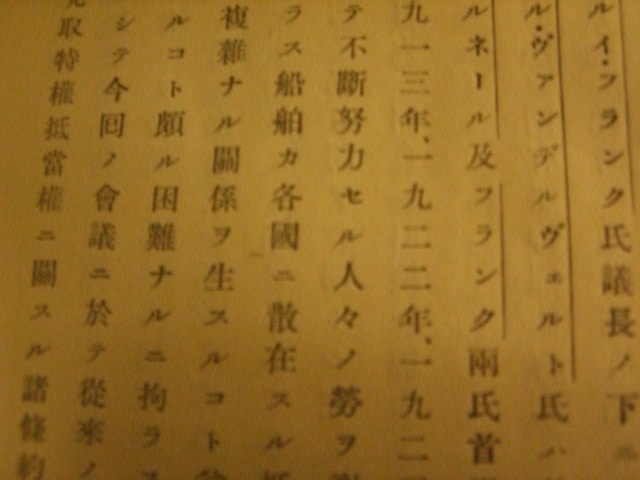 ルイ・フランク氏議長ノ下ニ
ル・ヴァンデルヴェルト氏ハ
ルネール及フランク兩氏首
九一三年、一九二二年、一九二
テ不斷努力セル人々ノ勞ヲ
ラス船舶カ各國ニ散在スル
複雜ナル關係ヲ生スルコト
ルコト頗ル困難ナルニ拘ラス
シテ今回ノ會議ニ於テ從來ノ
取特權抵當權ニ關スル諸條約